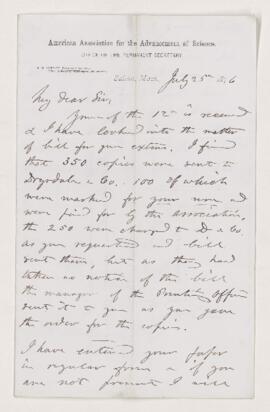 American Association for the Advancement of Science.
OFFICE OF THE PERMANENT SECRETARY
Salem, Mass. July 25th
My dear Sir,
Yours of the 12th is received
& I have looked into the matter
of bill for your extras. I find
that 350 copies were sent to
& Co. 100 of which
were marked for your use and
were paid for by the association,
the 250 were charged to D & Co.
as you requested and bill
sent them, but as they had
taken no notice of the bill
the manager of the Printing Office
sent it to you as you gave
the order for the copies.
I have entered your paper
in regular form & if you
are not present I will